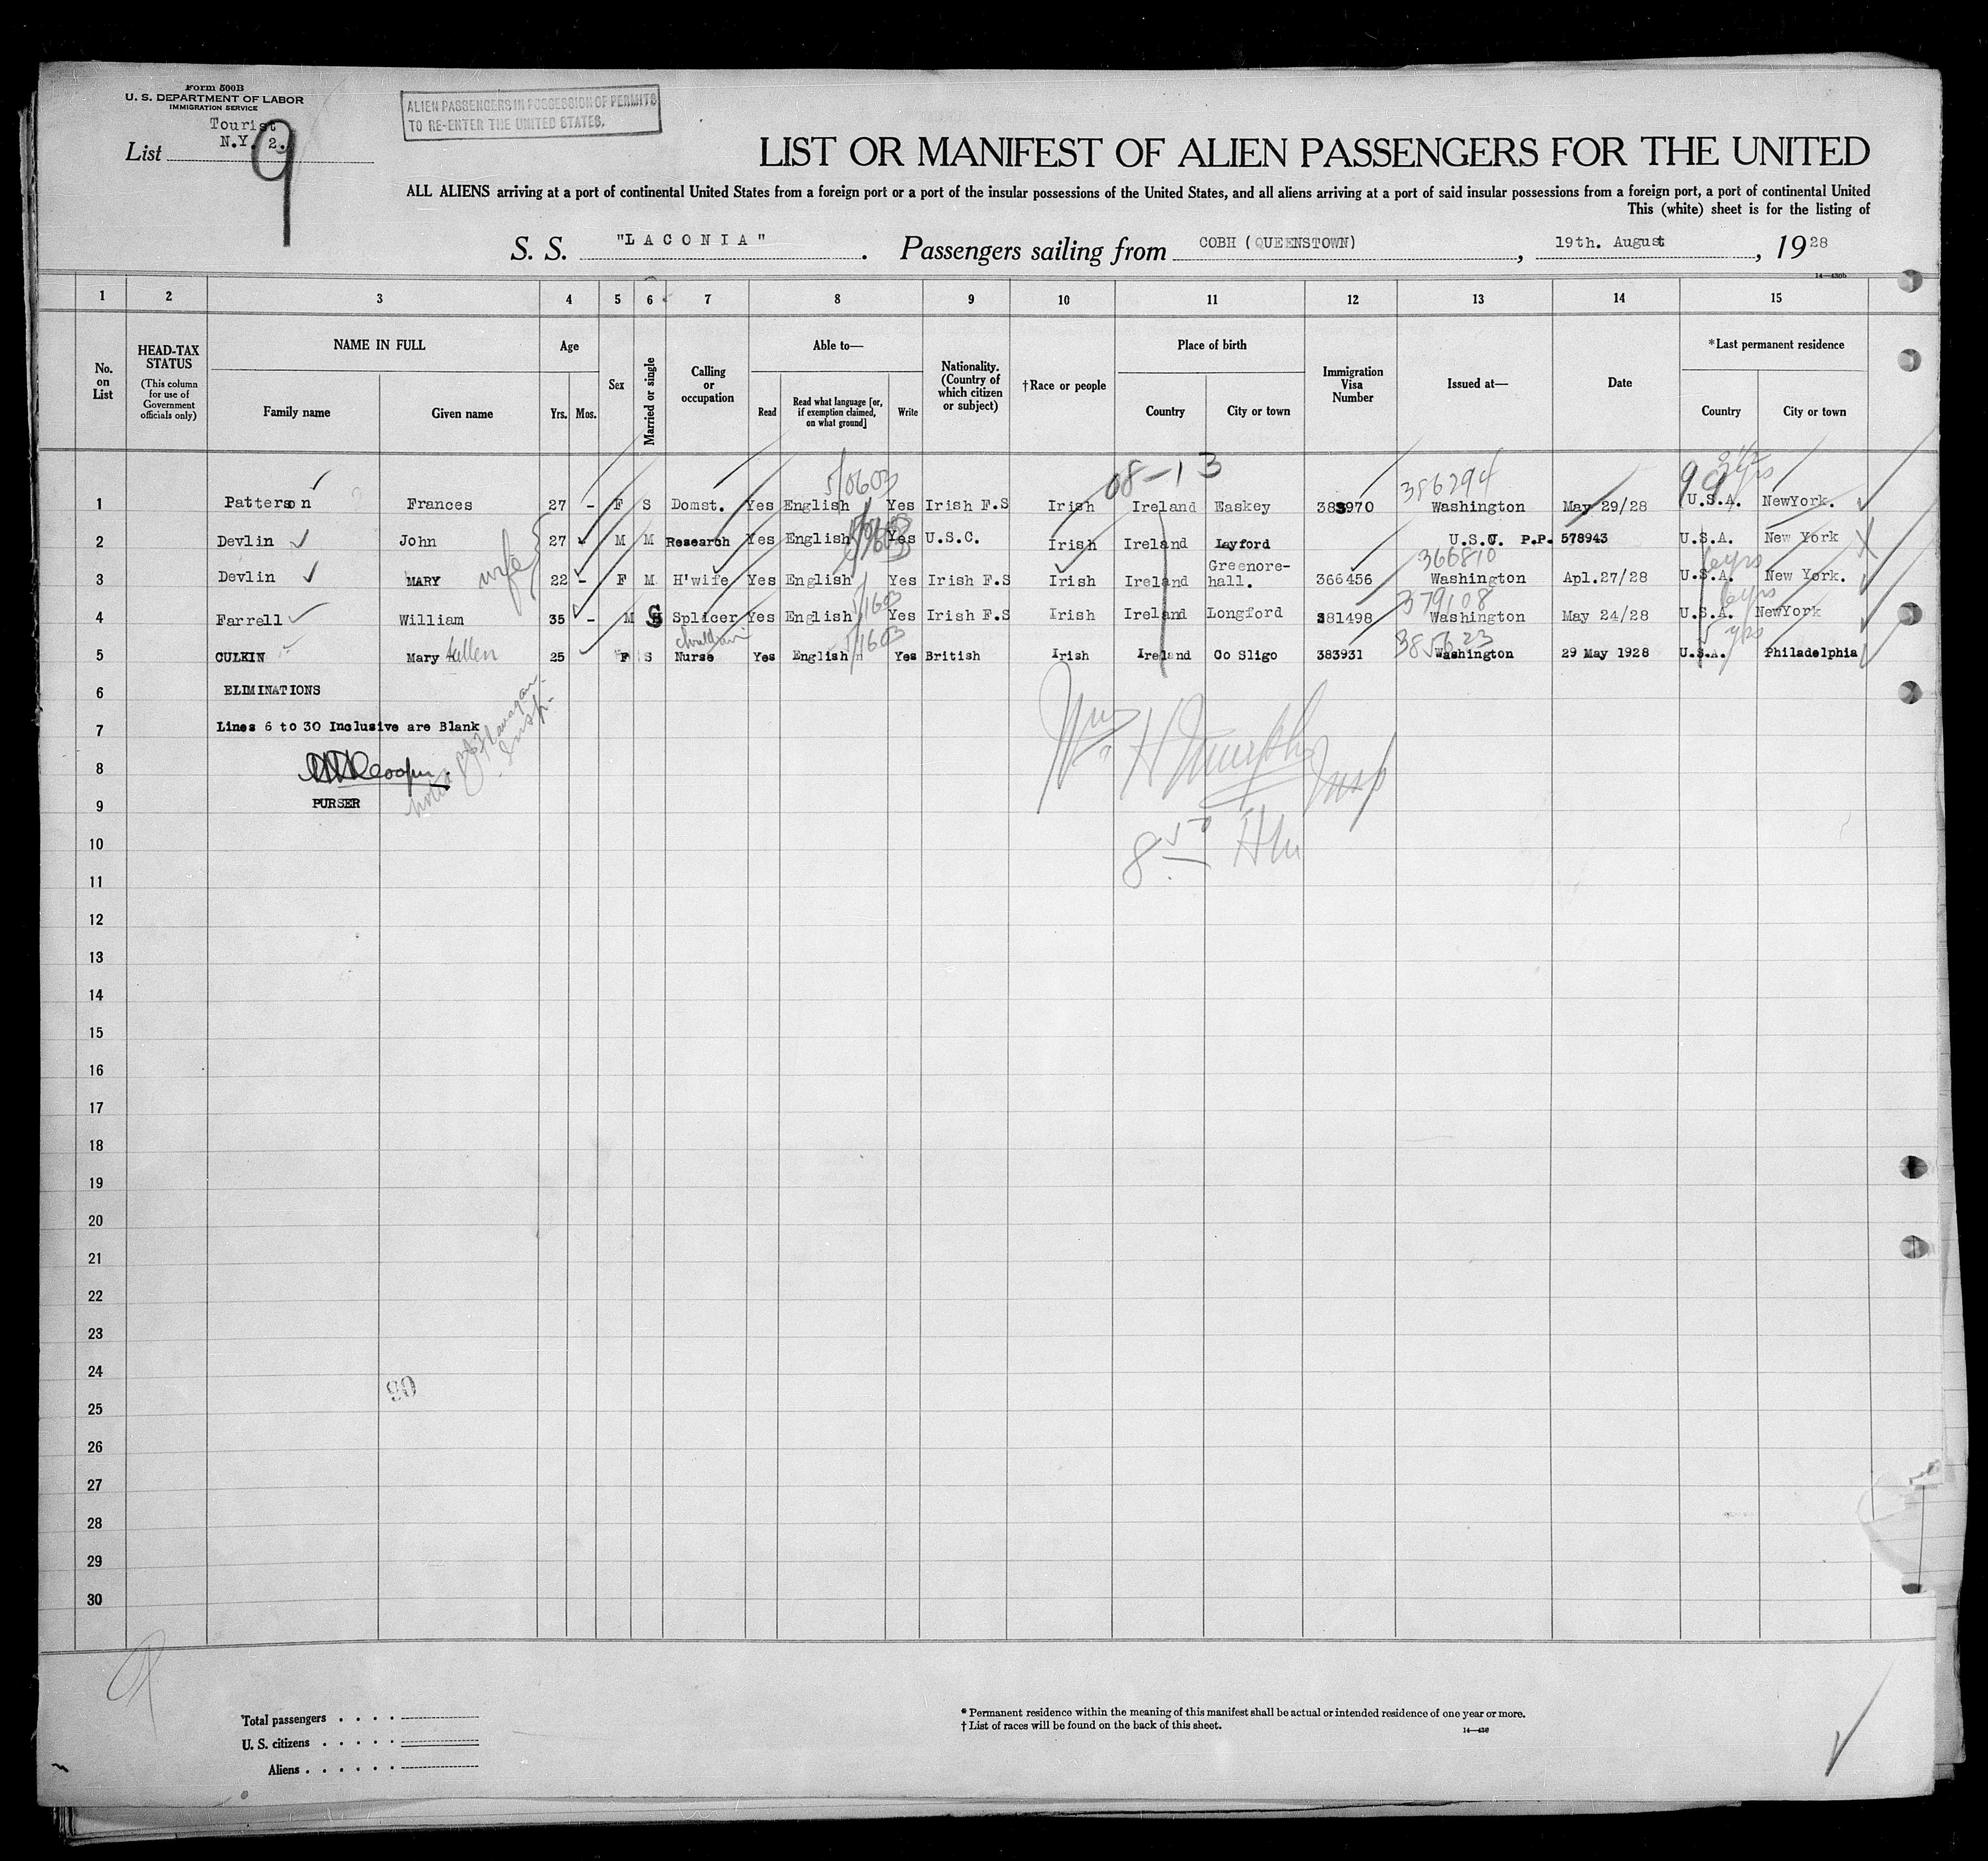 Form 500B
U. S. DEPARTMENT OF LABOR
IMMIGRATION SERVICE
Tourist
N.Y. 2.
List
9
ALIEN PASSENGERS IN POSSESSION OF PERMITS
TO RE-ENTER THE UNITED STATES.
LIST OR MANIFEST OF ALIEN PASSENGERS FOR THE UNITED
ALL ALIENS arriving at a port of continental United States from a foreign port or a port of the insular possessions of the United States, and all aliens arriving at a port of said insular possessions from a foreign port, a port of continental United
This (white) sheet is for the listing of
S. S. "LACONIA". Passengers sailing from COBH (QUEENSTOWN), 19th. August, 1928
14—430b
1 2 3 4 5 6 7 8 9 10 11 12 13 14 15
No. on List
HEAD-TAX STATUS
(This column for use of Government officials only)
NAME IN FULL
Family name
Given name
Age
Yrs. Mos.
Sex
Married or single
Calling or occupation
Able to—
Read
Read what language [or, if exemption claimed, on what ground]
Write
Nationality. (Country of which citizen or subject)
†Race or people
Place of birth
Country
City or town
Immigration Visa Number
Issued at—
Date
*Last permanent residence
Country
City or town
08-13
5/0603
386294
99
1 Patterson Frances 27 - F S Domst. Yes English Yes Irish F.S Irish Ireland Easkey 383970 Washington May 29/28 U.S.A. NewYork.
2 Devlin John 27 - M M Research Yes English Yes U.S.C. Irish Ireland Layford U.S. P.P. 578943 U.S.A. New York
wife
366810
6yrs
3 Devlin MARY 22 - F M H'wife Yes English Yes Irish F.S Irish Ireland Greenore-hall. 366456 Washington Apl.27/28 U.S.A. New York.
5/1603
379108
6yrs
4 Farrell William 35 - M S Splicer Yes English Yes Irish F.S Irish Ireland Longford 381498 Washington May 24/28 U.S.A. NewYork
5/1603
385623
5 yrs
5 CULKIN Mary Ellen 25 F S Nurse Yes English Yes British Irish Ireland Co Sligo 383931 Washington 29 May 1928 U.S.A. Philadelphia
6 ELIMINATIONS
7 Lines 6 to 30 Inclusive are Blank
8
9 PURSER
Insp.
Wm H Murphy
Insp
10
11
12
13
14
15
16
17
18
19
20
21
22
23
24
90
25
26
27
28
29
30
9
Total passengers
U. S. citizens
Aliens
* Permanent residence within the meaning of this manifest shall be actual or intended residence of one year or more.
† List of races will be found on the back of this sheet.
14—430